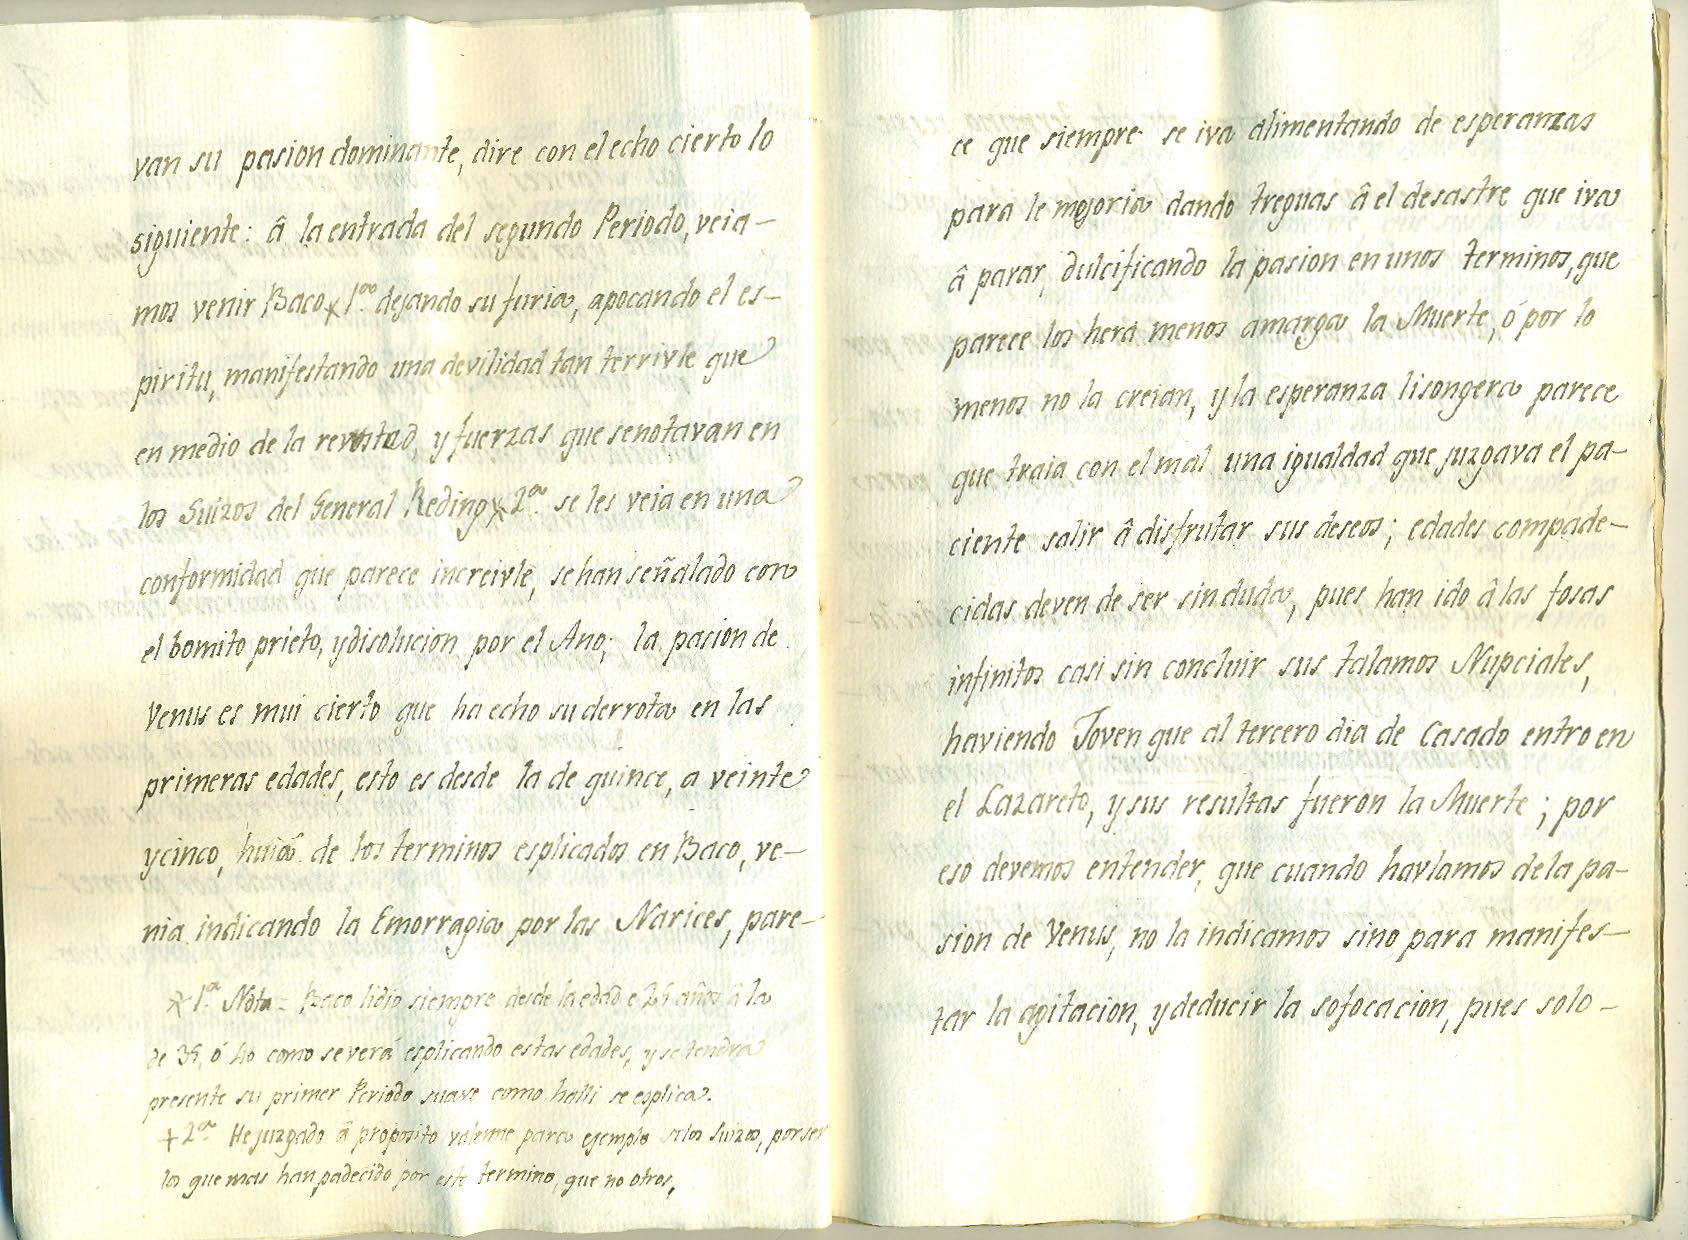 van su pasion dominante, dire con el echo cierto lo
siguiente: â la entrada del segundo Periodo, veia-
mos venir Baco x 1ª dejando su furia, apocando el es-
piritu, manifestando una devilidad tan terrivle que
en medio de la y fuerzas que se notavan en
los Suizos del General Reding x 2ª se les veia en una
conformidad que parece increivle, se han señalado con
el bomito prieto, y disolucion por el Ano; la pasion de
Venus es mui cierto que ha echo su derrota en las
primeras edades, esto es desde la de quince, a veinte
y cinco, de los terminos esplicados en Baco, ve-
nia indicando la Emorragia por las Narices, pare-
x 1ª Nota = Baco lidio siempre desde la edad e 25 años â la
de 35, ó ho como se verá esplicando estas edades, y se tendra
presente su primer Periodo suave como halli se esplica.
+ 2ª He juzgado â proposito valerme para ejemplo los Suizos, por ser
los que mas han padecido por este termino, que no otros,
ce que siempre se iva alimentando de esperanzas
para le mejoria dando treguas â el desastre que iva
â parar, dulcificando la pasion en unos terminos, que
parece los hera menos amarga la Muerte, ó por lo
menos no la creian, y la esperanza lisongera parece
que traia con el mal una igualdad que juzgava el pa-
ciente salir â disfrutar sus deseos; edades compade-
cidas deven de ser sin duda, pues han ido â las fosas
infinitos casi sin concluir sus talamos Nupciales,
haviendo Joven que al tercero dia de Casado entro en
el Lazareto, y sus resultas fueron la Muerte; por
eso devemos entender, que cuando havlamos de la pa-
sion de Venus, no la indicamos sino para manifes-
tar la agitacion, y deducir la sofocacion, pues solo-